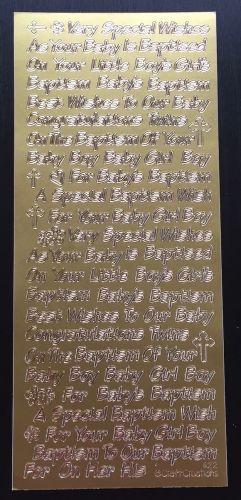 Very Special Wishes
As Your Baby Is Baptised
On Your Little Boy's Girl's
Baptism Baby's Baptism
Best Wishes To Our Baby
Congratulations Twins
On The Baptism Of Your
Baby Boy Baby Girl Boy
For Baby's Baptism
A Special Baptism Wish
For Your Baby Girl Boy
Very Special Wishes
As Your Baby Is Baptised
On Your Little Boy's Girl's
Baptism Baby's Baptism
Best Wishes To Our Baby
Congratulations Twins
On The Baptism Of Your
Baby Boy Baby Girl Boy
For Baby's Baptism
A Special Baptism Wish
For Your Baby Girl Boy
Baptism To Our Baptism
For On Her His
©Craft Creations